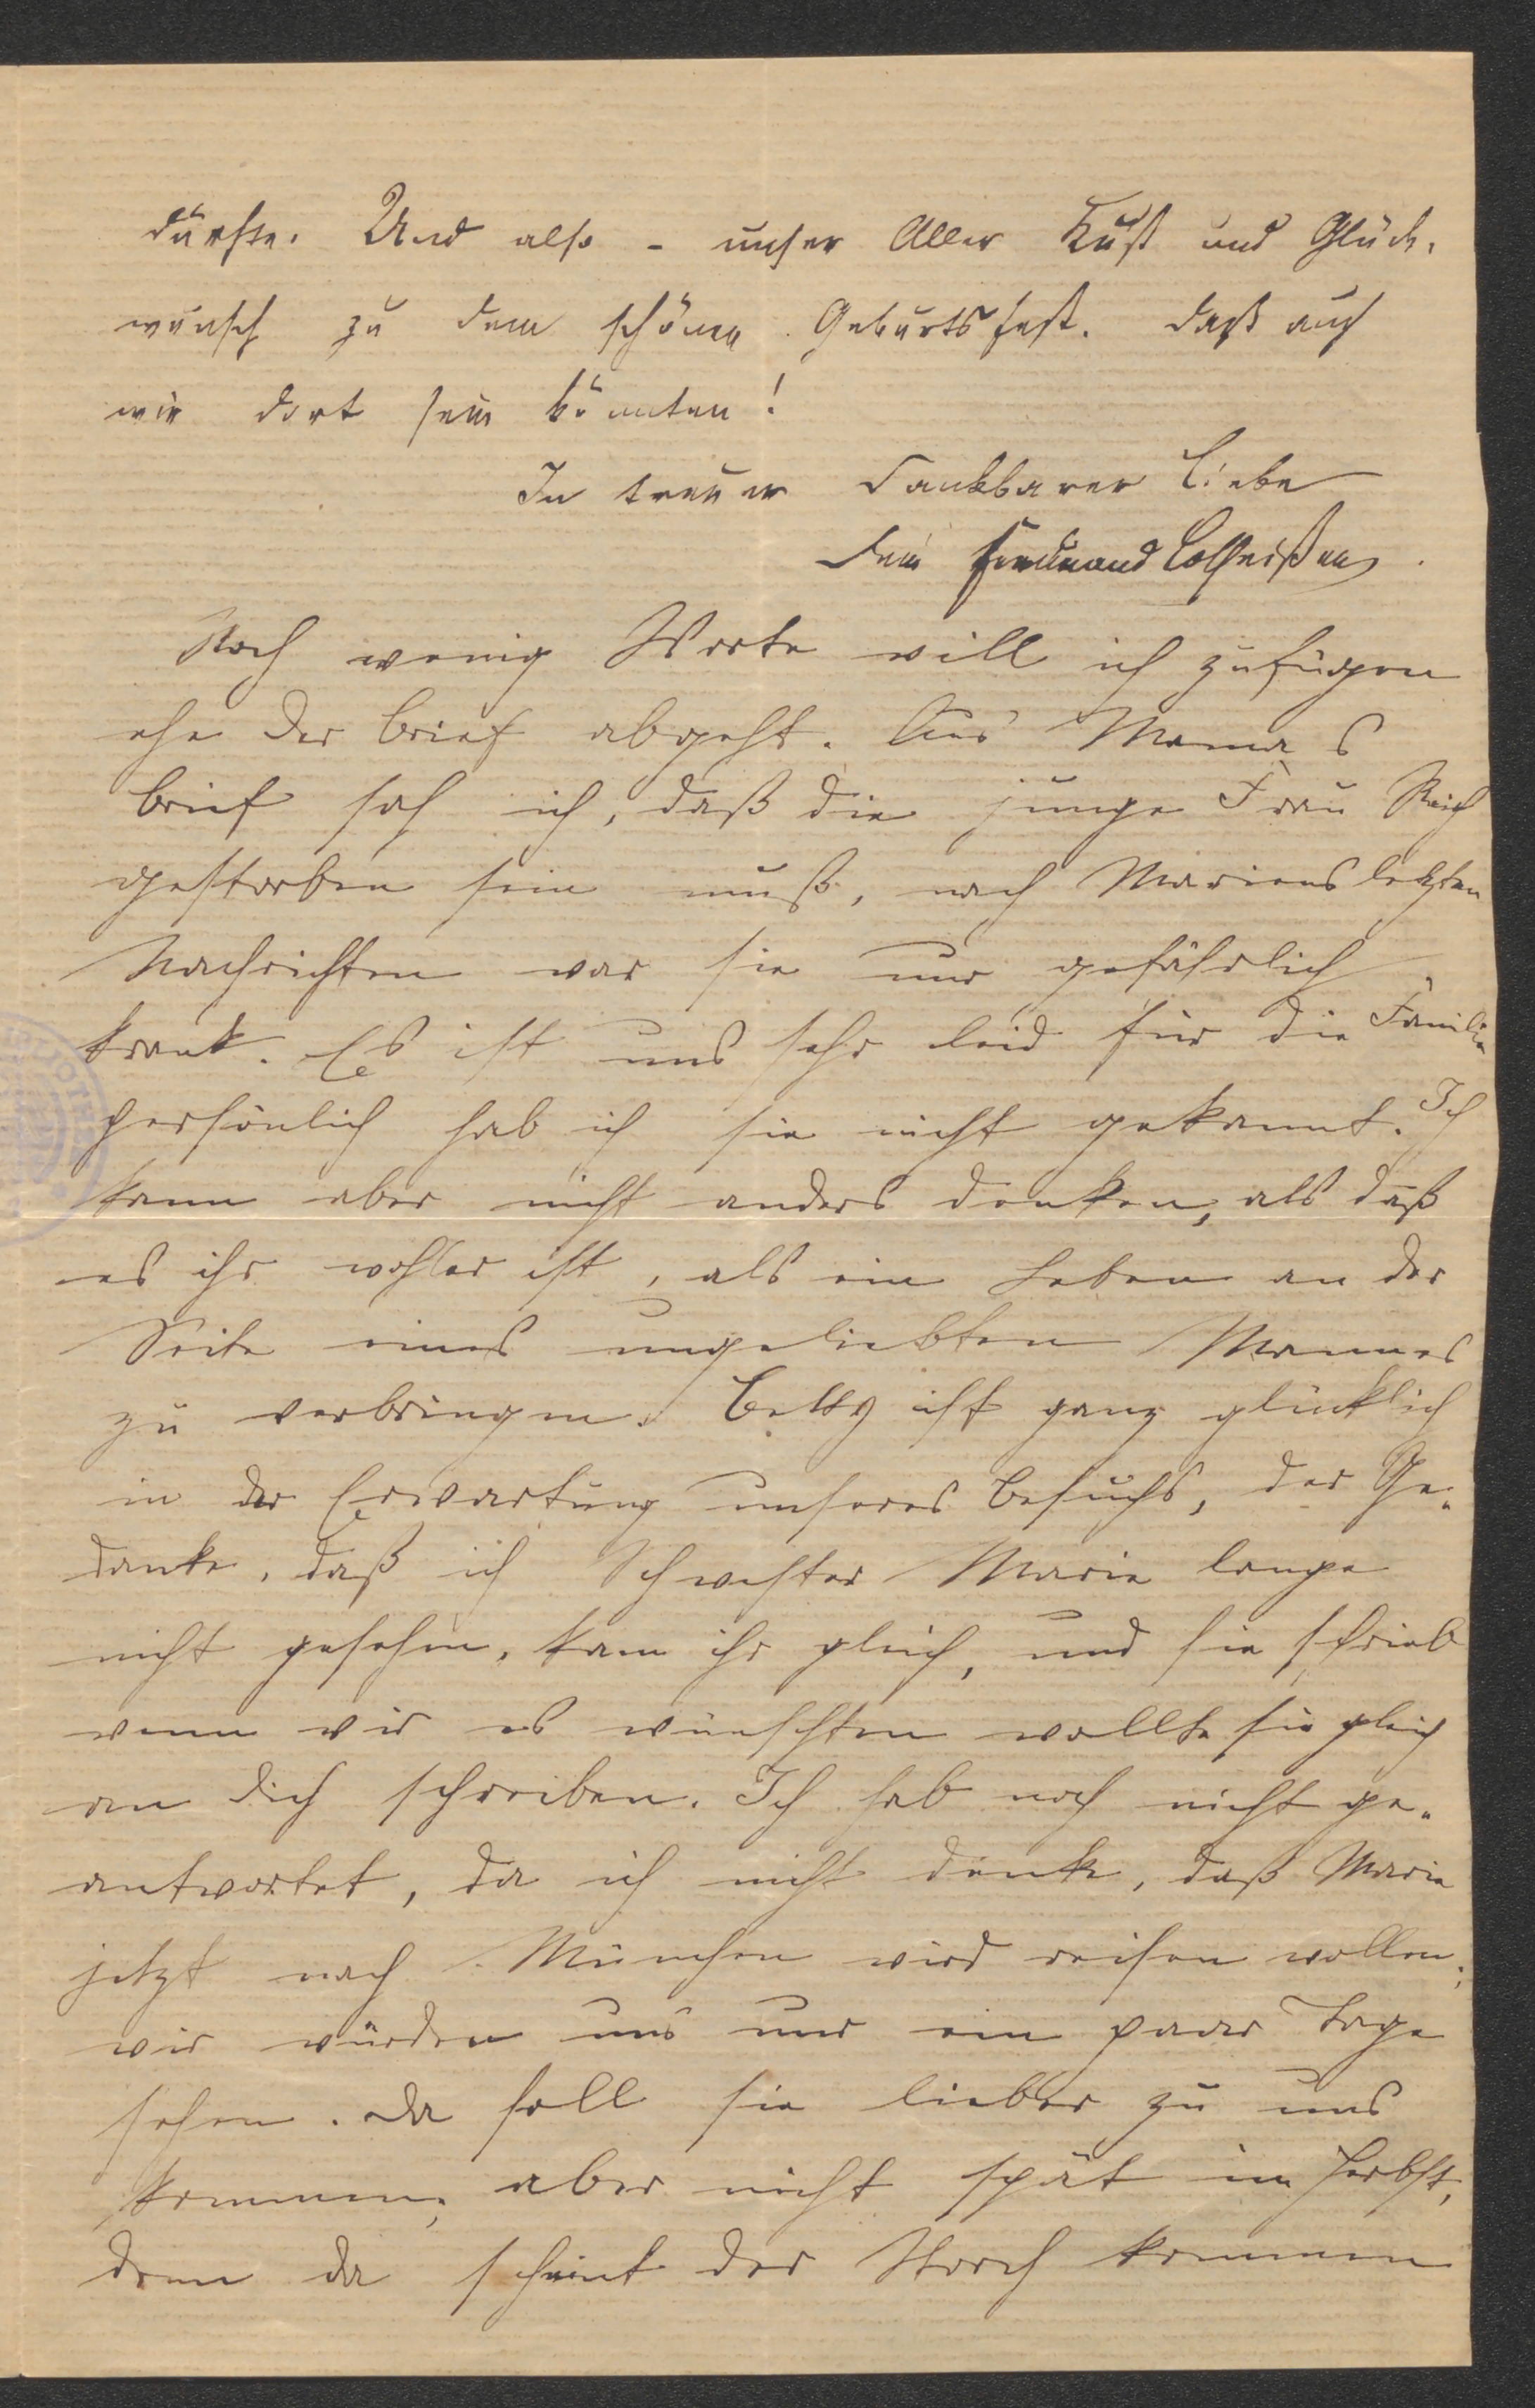 dürfte. Und also - unser Aller Kuß und Glück-
wunsch zu dem schönen Geburtsfest. Daß auch
wir dort sein könnten!
In treuer dankbarer Liebe
Dein Ferdinand Lotheißen.
Noch wenig Worte will ich zufügen
ehe der Brief abgeht. Aus Mama's
Brief sah ich, daß die junge Frau Reich
gestorben sein muß, nach Mariens letzten
Nachrichten war sie nur gefährlich
krank. Es ist uns sehr leid für die Familie
persönlich hab ich sie nicht gekannt. Ich
kann aber nicht anders denken, als daß
es ihr wohler ist, als ein Leben an der
Seite eines ungeliebten Mannes
zu verbringen. Betty ist ganz glücklich
in der Erwartung unseres Besuchs, der Ge-
danke, daß ich Schwester Marie lange
nicht gesehen, kam ihr gleich, und sie schrieb
wenn wir es wünschten wollte sie gleich
an dich schreiben. Ich hab noch nicht ge-
antwortet, da ich nicht denke, daß Marie
jetzt nach München wird reisen wollen;
wir würden uns nur ein paar Tage
sehen. Da soll sie lieber zu uns
kommen, aber nicht spät im Herbst,
denn da scheint der Storch kommen